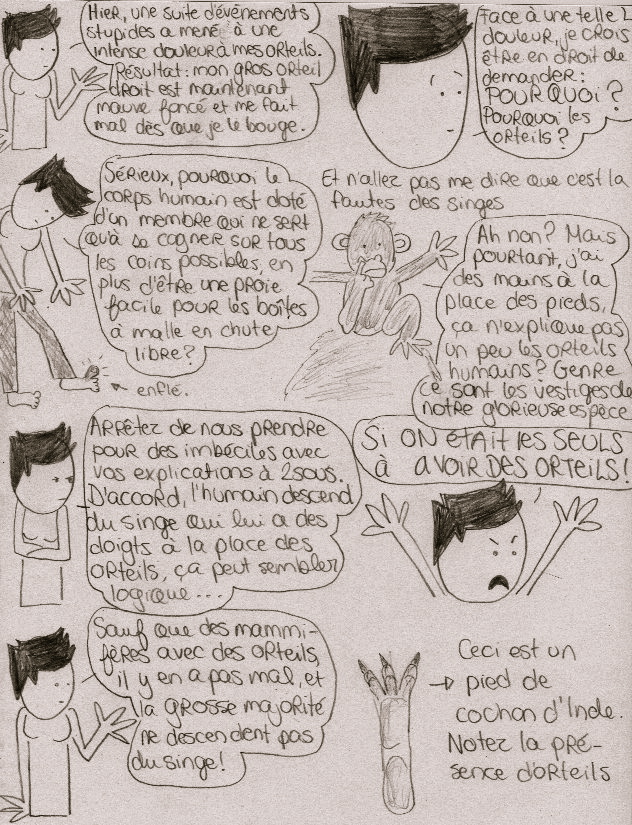 Hier, une suite d'événements
stupides a mené à une
intense douleur à mes orteils.
Résultat: mon gros orteil
droit est maintenant
mauve foncé et me fait
mal dès que je le bouge.
Face à une telle
douleur, je crois
être en droit de
demander:
POURQUOI?
Pourquoi les
orteils?
Sérieux, pourquoi le
corps humain est doté
d'un membre qui ne sert
qu'à se cogner sur tous
les coins possibles, en
plus d'être une proie
facile pour les boîtes
à malle en chute
libre?
enflé.
Et n'allez pas me dire que c'est la
fautes des singes
Ah non? Mais
pourtant, j'ai
des mains à la
place des pieds,
ça n'explique pas
un peu les orteils
humains? Genre
ce sont les vestiges de
notre glorieuse espèce
Arrêtez de nous prendre
pour des imbéciles avec
vos explications à 2sous.
D'accord, l'humain descend
du singe qui lui a des
doigts à la place des
orteils, ça peut sembler
logique...
SI ON ÉTAIT LES SEULS
À AVOIR DES ORTEILS!
Sauf que des mammi-
fères avec des orteils,
il y en a pas mal, et
la grosse majorité
ne descendent pas
du singe!
Ceci est un
pied de
cochon d'Inde.
Notez la pré-
sence d'orteils